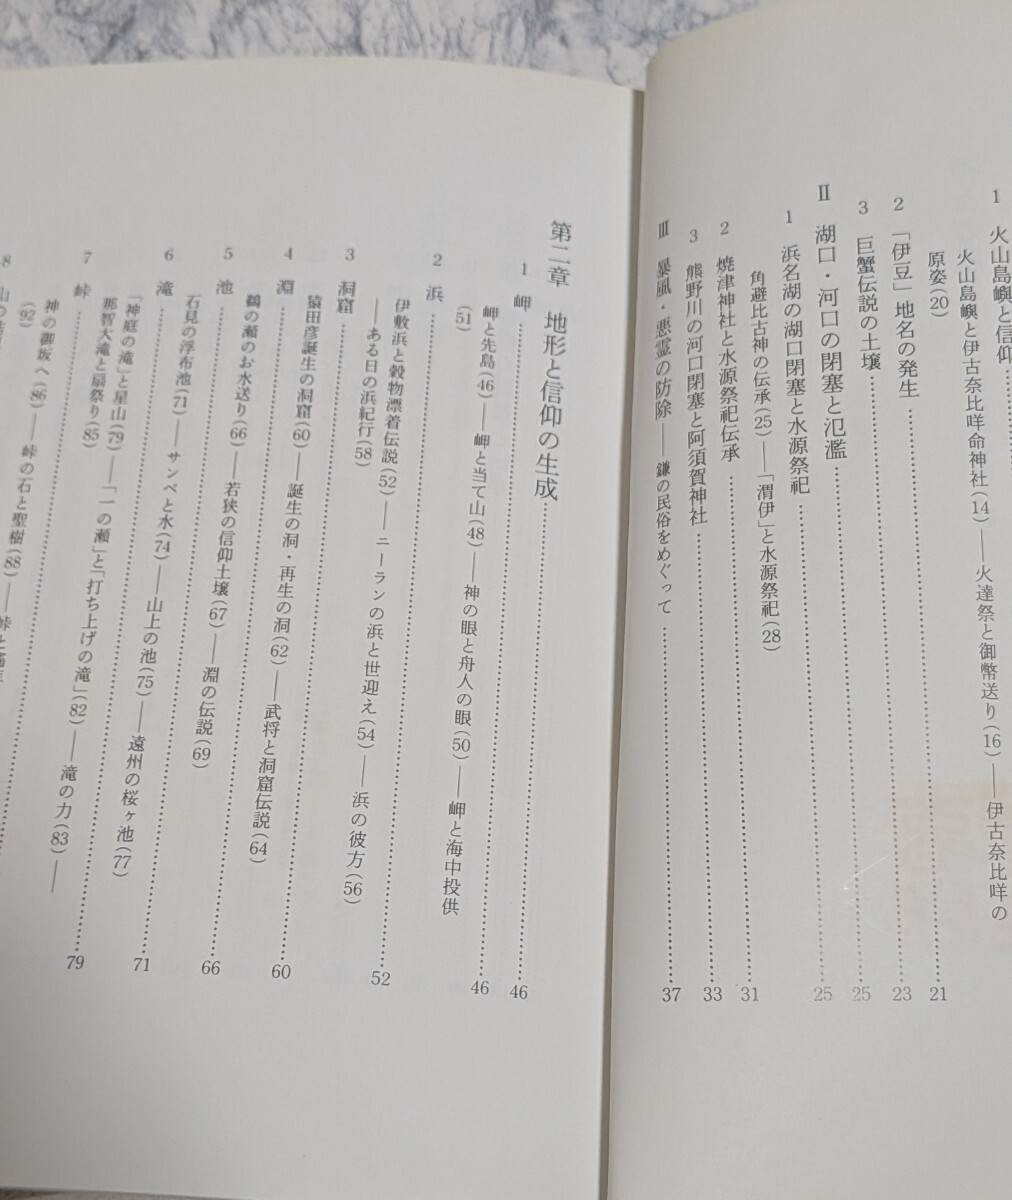 1 火山島嶼と信仰
火山島嶼と伊古奈比咩命神社(14)——火達祭と御幣送り(16)——伊古奈比咩の
原姿(20) 21
2 「伊豆」地名の発生 23
3 巨蟹伝説の土壌 25
Ⅱ 湖口・河口の閉塞と氾濫 25
1 浜名湖の湖口閉塞と水源祭祀
角避比古神の伝承(25)——「渭伊」と水源祭祀(28)
2 焼津神社と水源祭祀伝承 31
3 熊野川の河口閉塞と阿須賀神社 33
Ⅲ 暴風・悪霊の防除——鎌の民俗をめぐって 37
第二章 地形と信仰の生成 46
1 岬 46
岬と先島(46)——岬と当て山(48)——神の眼と舟人の眼(50)——岬と海中投供
(51)
2 浜 52
伊敷浜と穀物漂着伝説(52)——ニーランの浜と世迎え(54)——浜の彼方(56)
——ある日の浜紀行(58)
3 洞窟 60
猿田彦誕生の洞窟(60)——誕生の洞・再生の洞(62)——武将と洞窟伝説(64)
4 淵 66
鵜の瀬のお水送り(66)——若狭の信仰土壌(67)——淵の伝説(69)
5 池 71
石見の浮布池(71)——サンベと水(74)——山上の池(75)——遠州の桜ヶ池(77)
6 滝 79
「神庭の滝」と星山(79)——「一の瀬」と「打ち上げの滝」(82)——滝の力(83)——
那智大滝と扇祭り(85)
7 峠
神の御坂へ(86)——峠の石と聖樹(88)——峠と
(92)
8 山の